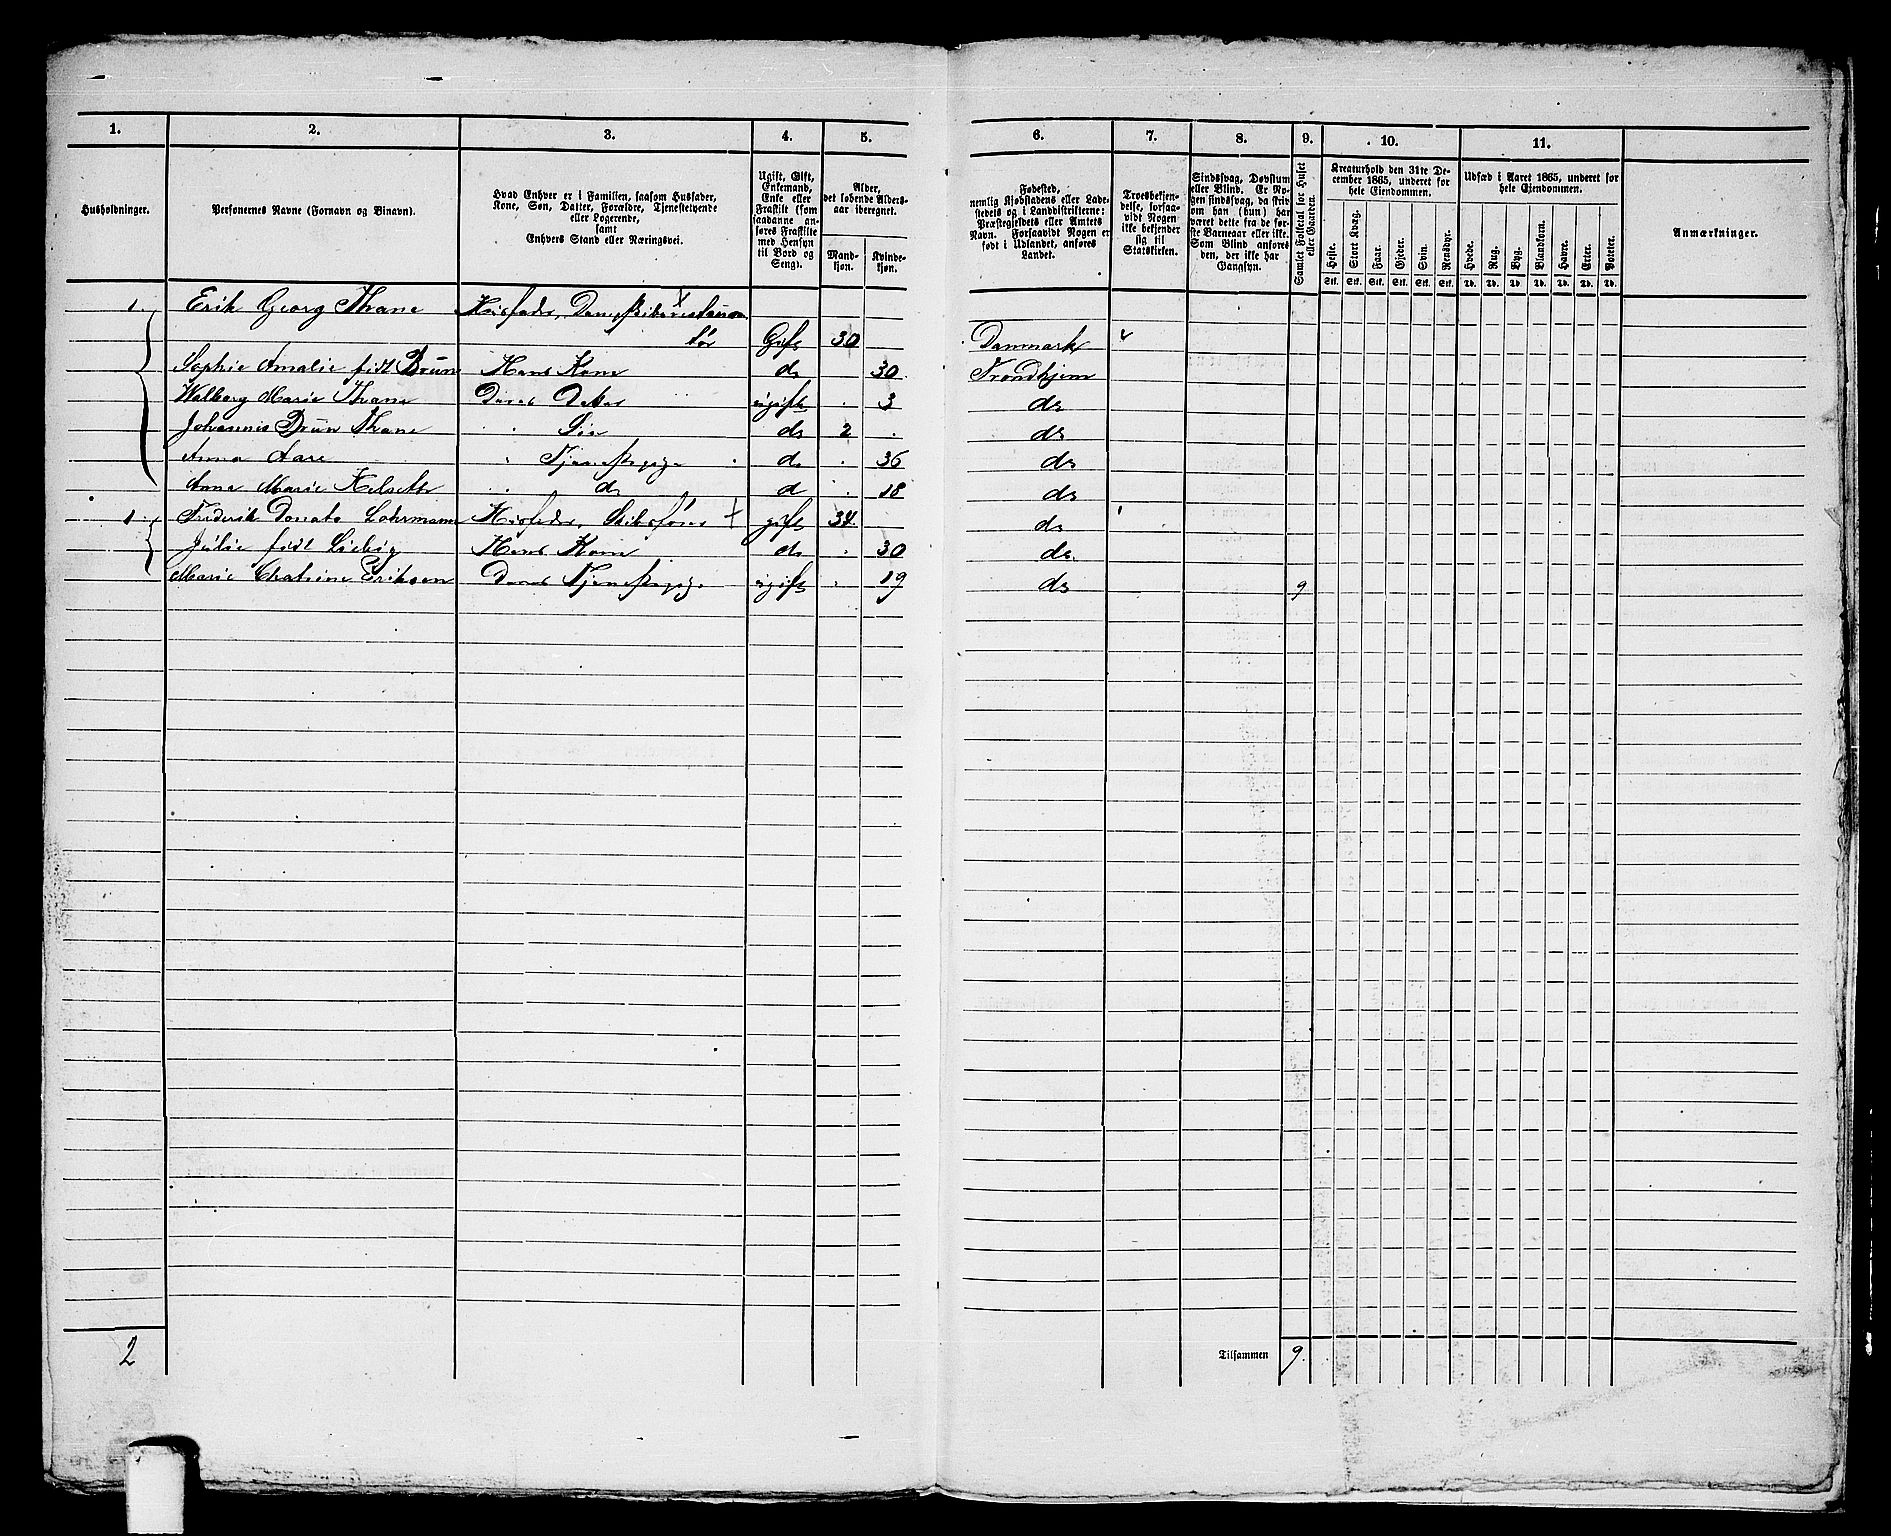 1. 2. 3. 4. 5. 6. 7. 8. 9. 10. 11.
Husholdninger.
Personernes Navne (Fornavn og Binavn).
Hvad Enhver er i Familien, saasom Husfader,
Kone, Søn, Datter, Forældre, Tjenestetyende
eller Logerende,
samt
Enhvers Stand eller Næringsvei.
Ugift, Gift,
Enkemand,
Enke eller
Fraskilt (som
saadanne an-
føres Fraskilte
med Hensyn
til Bord og
Seng).
Alder,
det løbende Alders-
aar iberegnet.
Mand-
kjøn.
Kvinde-
kjøn.
Fødested,
nemlig Kjøbstadens eller Lade-
stedets og i Landdistrikterne:
Præstegjeldets eller Amtets
Navn. Forsaavidt Nogen er
født i Udlandet, anføres
Landet.
Troesbekjen-
delse, forsaa-
vidt Nogen
ikke bekjender
sig til
Statskirken.
Sindssvag, Døvstum
eller Blind. Er No-
gen sindssvag, da skriv
om han (hun) har
været dette fra de før-
ste Barneaar eller ikke.
Som Blind anføres
den, der ikke har
Gangsyn.
Samlet Folketal for Huset
eller Gaarden.
Kreaturhold den 31te De-
cember 1865, underet for
hele Eiendommen.
Heste. Stort Kvæg. Faar. Gjeder. Svin. Rensdyr.
Stk. Stk. Stk. Stk. Stk. Stk.
Udsæd i Aaret 1865, underet for
hele Eiendommen.
Hvede. Rug. Byg. Blandkorn. Havre. Erter. Poteter.
Td. Td. Td. Td. Td. Td. Td.
Anmærkninger.
1 Erik Georg Thane Husfader,
tør Gift 30 Danmark
Sophie Amalie født Brun Hans Kone do 30 Trondhjem
Walborg Marie Thane Deres Datter ugift 3 do
Johannes Brun Thane " Søn do 2 do
Anna Aare " Tjenestepige do 36 do
Anne Marie Kelseth " do do 18 do
1 Frederik Donato Lohrmann Husfader, Skibsfører gift 34 do
Julie født Liebig Hans Kone do 30 do
Marie Chatrine Eriksen Deres Tjenestepige ugift 19 do 9
2 Tilsammen 9.